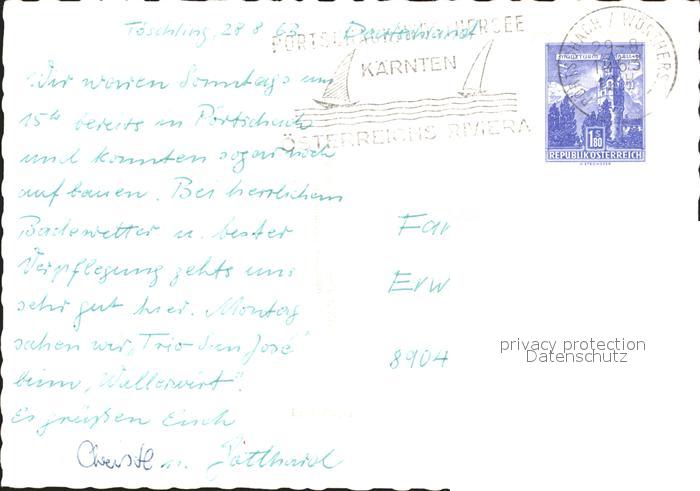 Töschling, 28 8 63 Deutschland
PÖRTSCHACH
KÄRNTEN
ÖSTERREICHS RIVIERA
PÖRTSCHACH / WÖRTHERS
REPUBLIK ÖSTERREICH
Wir waren Sonntags um
15 bereits in Pörtschach
und konnten sogar noch
aufbauen. Bei herrlichem
Badewetter u. bester
Verpflegung gehts uns
sehr gut hier. Montag
sahen wir „Trio San José"
beim „Wallerwirt".
Es grüßen Euch
Christl u. Gotthard
Fa
Erw
8904
privacy protection
Datenschutz